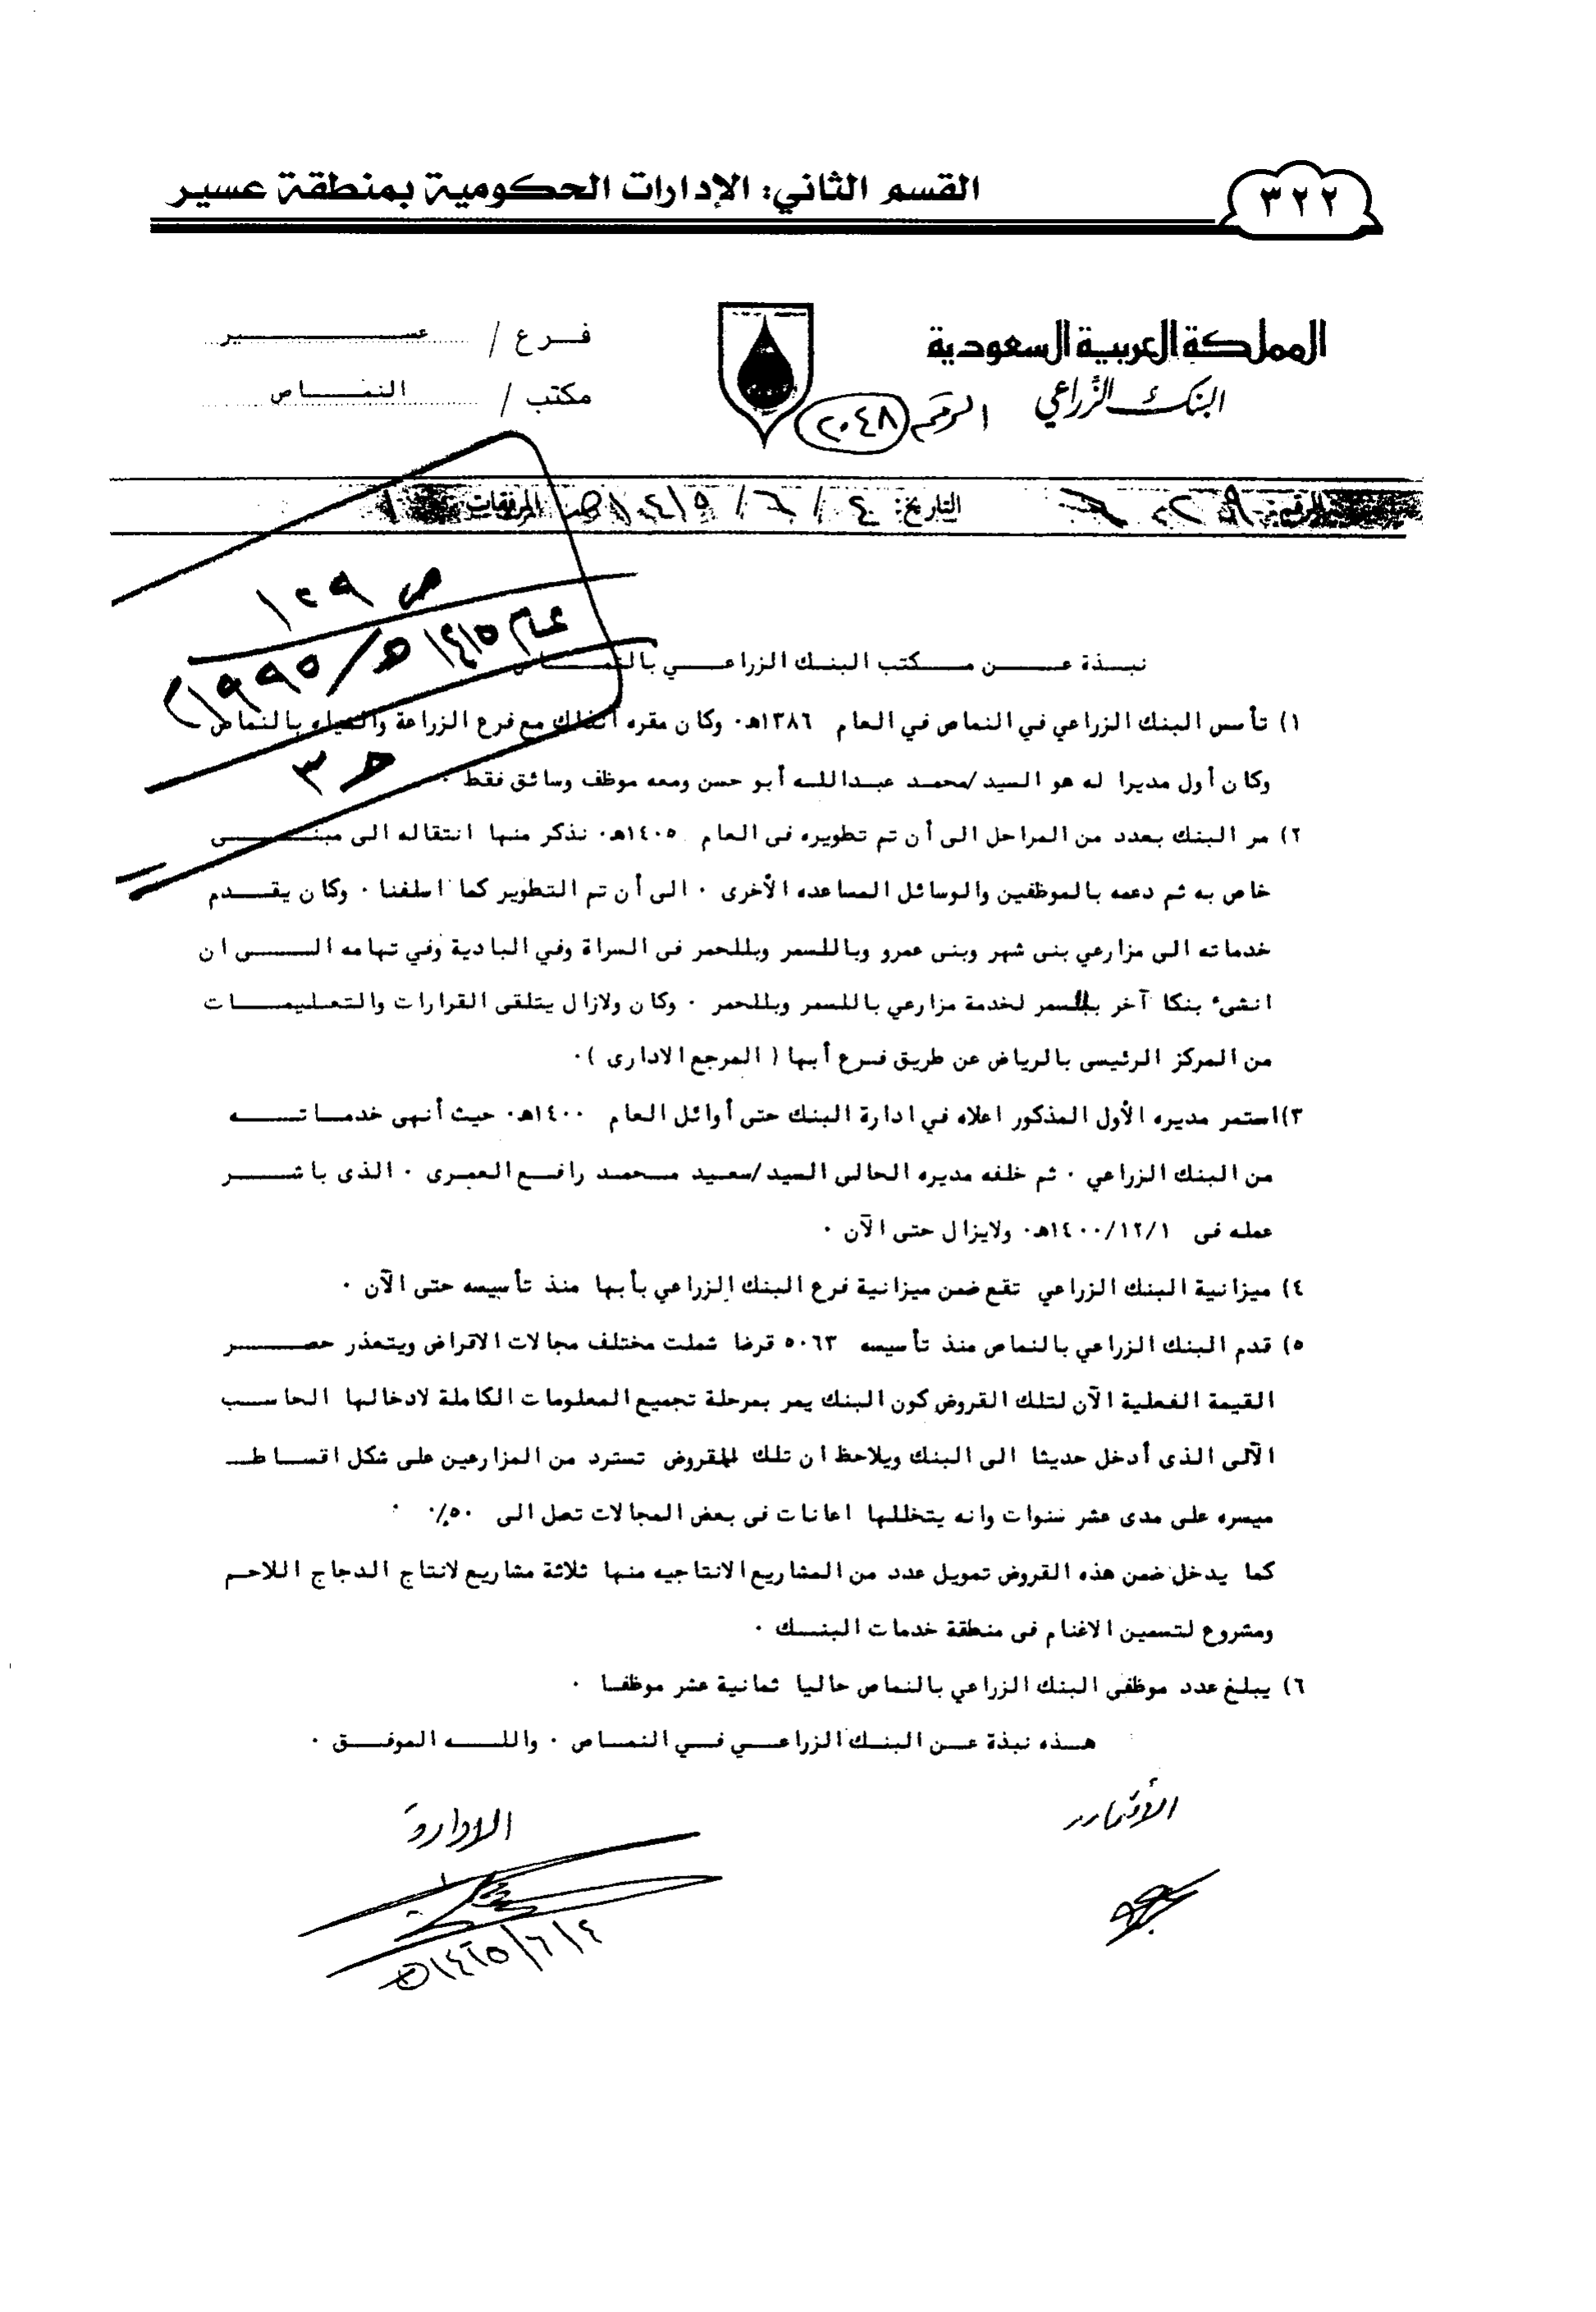 القسم الثاني: الإدارات الحكومية بمنطقة عسير
٣٢٢
المملكة العربية السعودية
البنك الزراعي
الرقم ٢٠٤٨
فرع / عسير
مكتب / النماص
الرقم:
التاريخ: ٤ / ٦ / ١٤١٥هـ
المرفقات
ص ١٢٩
عام ١٤١٥هـ/١٩٩٥م
حـ ٣
نبذة عن مكتب البنك الزراعي بالنماص
١) تأسس البنك الزراعي في النماص في العام ١٣٨٦هـ٠ وكان مقره انذاك مع فرع الزراعة والمياه بالنماص
وكان أول مديرا له هو السيد/محمد عبدالله أبو حسن ومعه موظف وسائق فقط ٠
٢) مر البنك بعدد من المراحل الى أن تم تطويره فى العام ١٤٠٥هـ٠ نذكر منها انتقاله الى مبنى
خاص به ثم دعمه بالموظفين والوسائل المساعده الأخرى ٠ الى أن تم التطوير كما اسلفنا ٠ وكان يقدم
خدماته الى مزارعي بنى شهر وبنى عمرو وباللسمر وبللحمر فى السراة وفي البادية وفي تهامه الى ان
انشىء بنكا آخر بللسمر لخدمة مزارعي باللسمر وبللحمر ٠ وكان ولازال يتلقى القرارات والتعليمات
من المركز الرئيسى بالرياض عن طريق فرع أبها ( المرجع الادارى )٠
٣)استمر مديره الأول المذكور اعلاه في ادارة البنك حتى أوائل العام ١٤٠٠هـ٠ حيث أنهى خدماته
من البنك الزراعي ٠ ثم خلفه مديره الحالى السيد/سعيد محمد رافع العمرى ٠ الذى باشر
عمله فى ١٤٠٠/١٢/١هـ٠ ولايزال حتى الآن ٠
٤) ميزانية البنك الزراعي تقع ضمن ميزانية فرع البنك الزراعي بأبها منذ تأسيسه حتى الآن ٠
٥) قدم البنك الزراعي بالنماص منذ تأسيسه ٥٠٦٣ قرضا شملت مختلف مجالات الاقراض ويتعذر حصر
القيمة الفعلية الآن لتلك القروض كون البنك يمر بمرحلة تجميع المعلومات الكاملة لادخالها الحاسب
الآلى الذى أدخل حديثا الى البنك ويلاحظ ان تلك القروض تسترد من المزارعين على شكل اقساط
ميسره على مدى عشر سنوات وانه يتخللها اعانات فى بعض المجالات تصل الى ٥٠٪ ٠
كما يدخل ضمن هذه القروض تمويل عدد من المشاريع الانتاجيه منها ثلاثة مشاريع لانتاج الدجاج اللاحم
ومشروع لتسمين الاغنام فى منطقة خدمات البنك ٠
٦) يبلغ عدد موظفى البنك الزراعي بالنماص حاليا ثمانية عشر موظفا ٠
هذه نبذة عن البنك الزراعي في النماص ٠ والله الموفق ٠
الإدارة
١٤١٥/٦/٤هـ